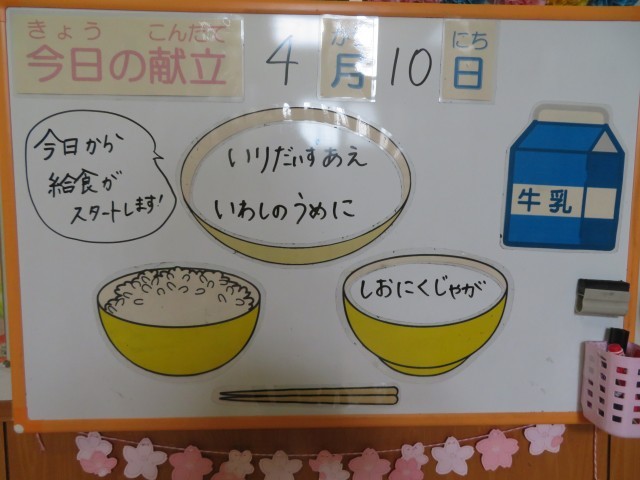 きょう こんだて
今日の献立 4 月 10 日
がつ
にち
今日から
給食が
スタートします!
いりだいずあえ
いわしのうめに
牛乳
しおにくじゃが